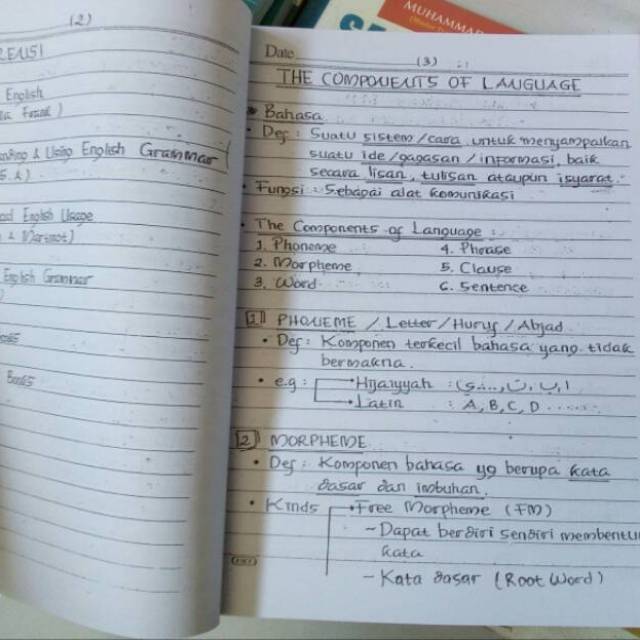 MUHAMMAD
(2)
English
English Grammar
English Usage
English Grammar
Books
Date
(3)
THE COMPONENTS OF LANGUAGE
Bahasa
• Def : Suatu sistem/cara untuk menyampaikan
suatu ide/gagasan/informasi, baik
secara lisan, tulisan ataupun isyarat.
• Fungsi : Sebagai alat komunikasi
• The Components of Language :
1. Phoneme 4. Phrase
2. Morpheme 5. Clause
3. Word 6. Sentence
[1] PHONEME / Letter/Huruf/Abjad
• Def : Komponen terkecil bahasa yang tidak
bermakna.
• e.g : Hijaiyyah : (ا, ب, ت, .... ي)
Latin : A, B, C, D ......
[2] MORPHEME
• Def : Komponen bahasa yg berupa kata
dasar dan imbuhan.
• Kinds Free Morpheme (FM)
- Dapat berdiri sendiri membentu
kata
- Kata dasar (Root Word)